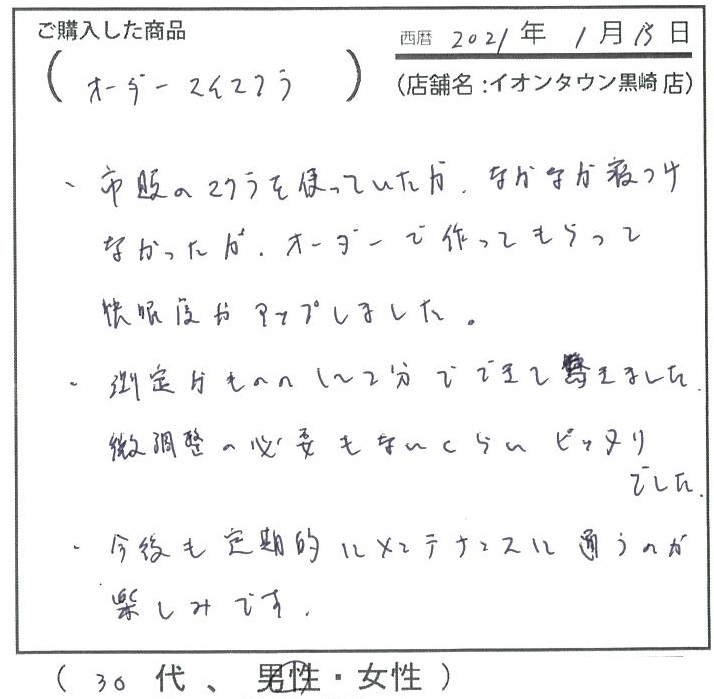 ご購入した商品
西暦 2021年 1月13日
(オーダーメイドマクラ)
(店舗名:イオンタウン黒崎店)
・市販のマクラを使っていたが、なかなか寝つけ
なかったが、オーダーで作ってもらって
快眠度がアップしました。
・測定がものの1〜2分でできて驚きました。
微調整の必要もないくらいピッタリ
でした。
・今後も定期的にメンテナンスに通うのが
楽しみです。
(30代、男性・女性)